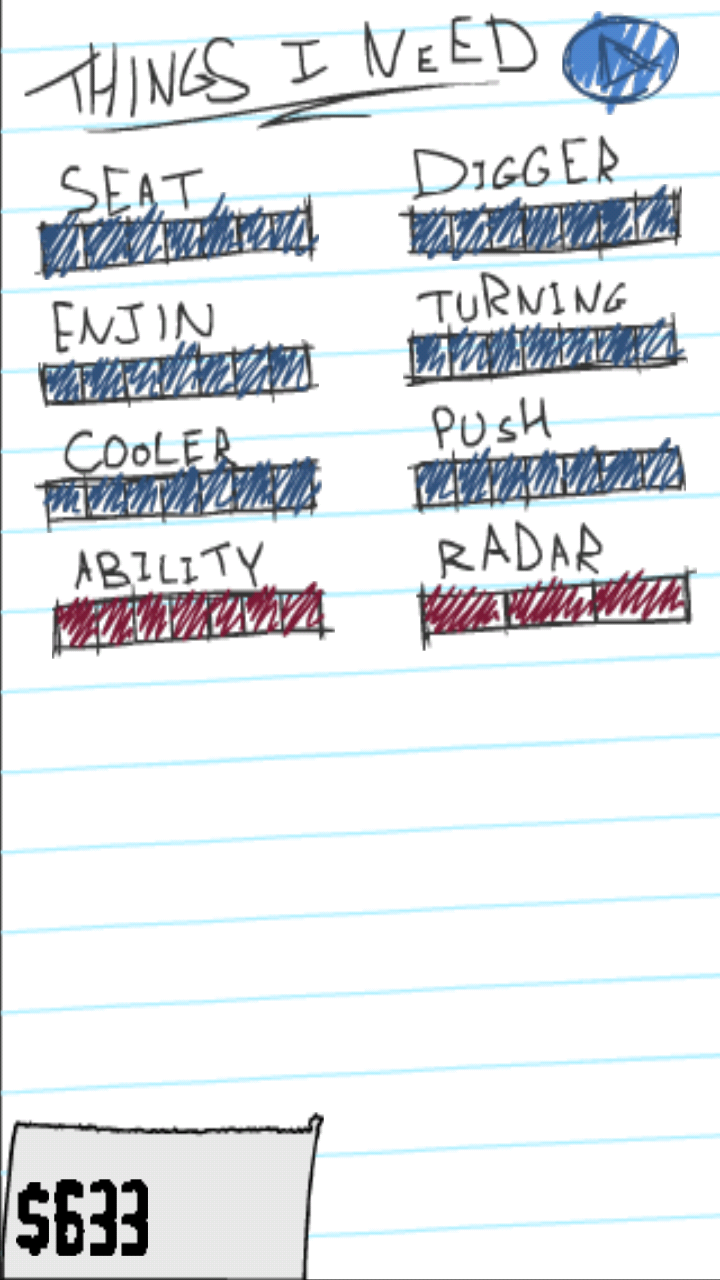 THINGS I NEED
SEAT
DIGGER
ENJIN
TURNING
COOLER
PUSH
ABILITY
RADAR
$633